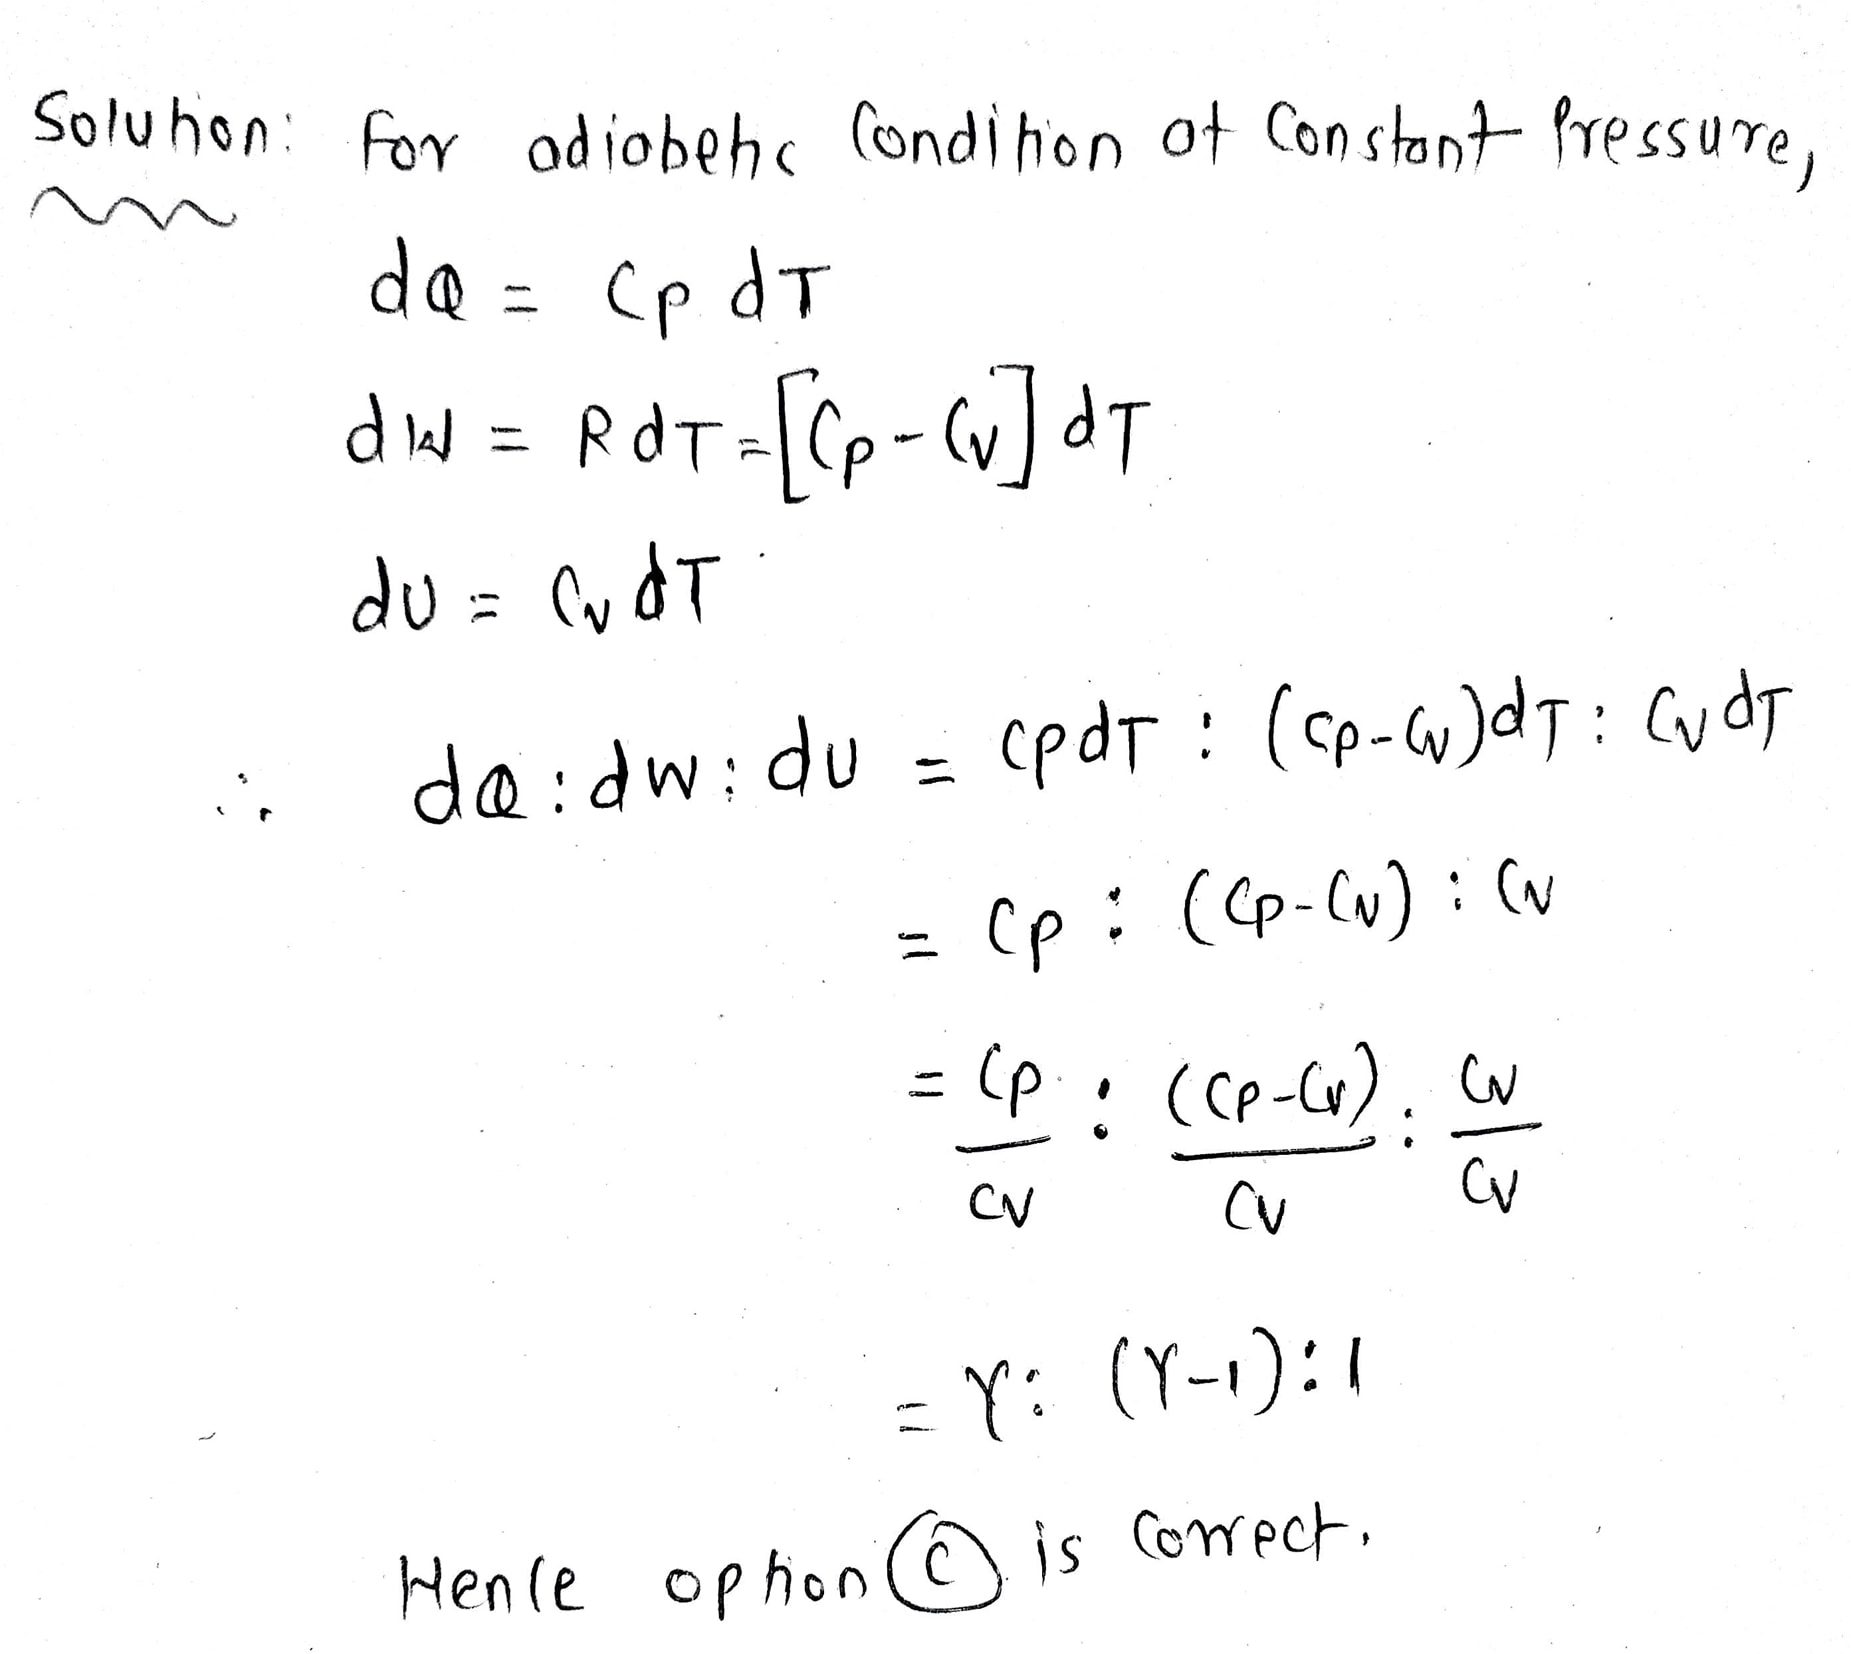 Solution: For adiabetic Condition at Constant Pressure,
dQ = Cp dT
dW = RdT = [Cp-Cv] dT
dU = Cv dT
∴ dQ : dW : dU = CpdT : (Cp-Cv)dT : CvdT
= Cp : (Cp-Cv) : Cv
= Cp/Cv : (Cp-Cv)/Cv : Cv/Cv
= γ : (γ-1) : 1
Hence option (C) is correct.